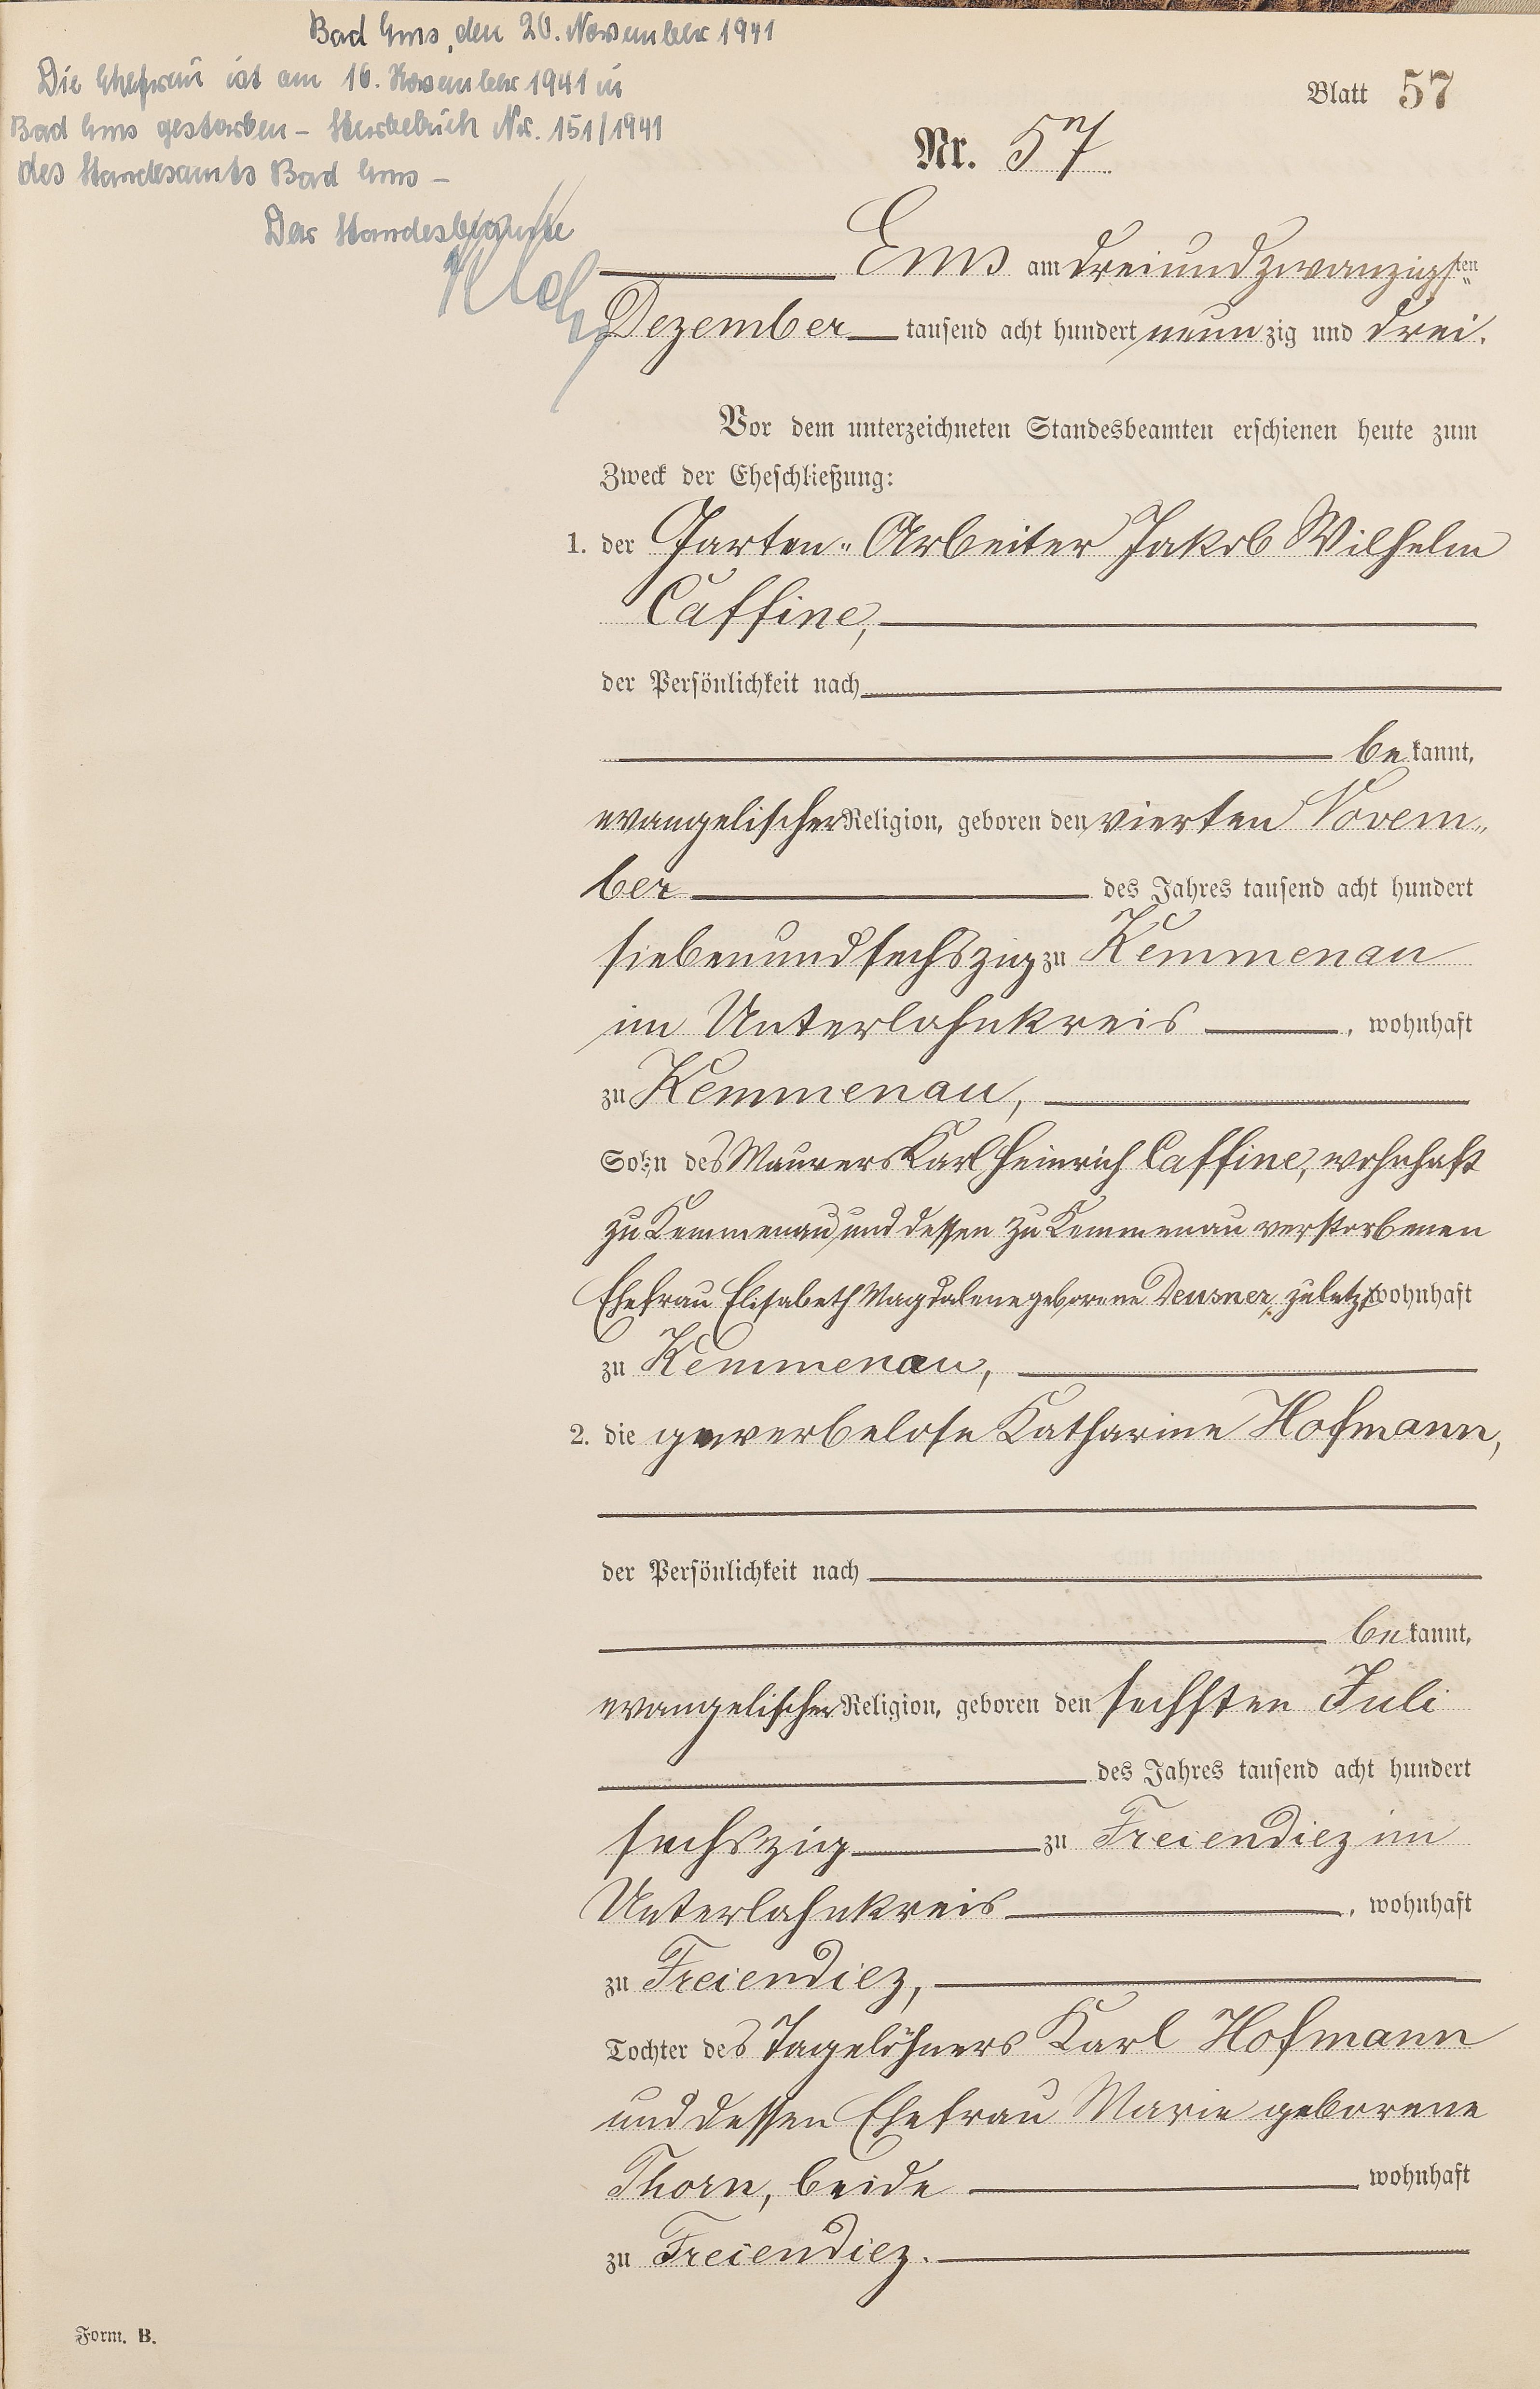 Bad Ems, den 20. November 1941
Die Ehefrau ist am 16. November 1941 in
Bad Ems gestorben – Sterbebuch Nr. 151/1941
des Standesamts Bad Ems –
Der Standesbeamte
Blatt 57
Nr. 57.
Ems am dreiundzwanzigsten
Dezember tausend acht hundert neunzig und drei.
Vor dem unterzeichneten Standesbeamten erschienen heute zum
Zweck der Eheschließung:
1. der Garten-Arbeiter Jakob Wilhelm
Caffine,
der Persönlichkeit nach
bekannt,
evangelischer Religion, geboren den vierten Novem-
ber des Jahres tausend acht hundert
siebenundsechszig zu Kemmenau
im Unterlahnkreis, wohnhaft
zu Kemmenau,
Sohn des Maurers Karl Heinrich Caffine, wohnhaft
zu Kemmenau, und dessen zu Kemmenau verstorbenen
Ehefrau Elisabeth Magdalene geborene Deusner, zuletzt wohnhaft
zu Kemmenau,
2. die gewerbelose Katharine Hofmann,
der Persönlichkeit nach
bekannt,
evangelischer Religion, geboren den sechsten Juli
des Jahres tausend acht hundert
sechszig zu Freiendiez im
Unterlahnkreis, wohnhaft
zu Freiendiez,
Tochter des Tagelöhners Karl Hofmann
und dessen Ehefrau Marie geborene
Thorn, beide wohnhaft
zu Freiendiez.
Form. B.